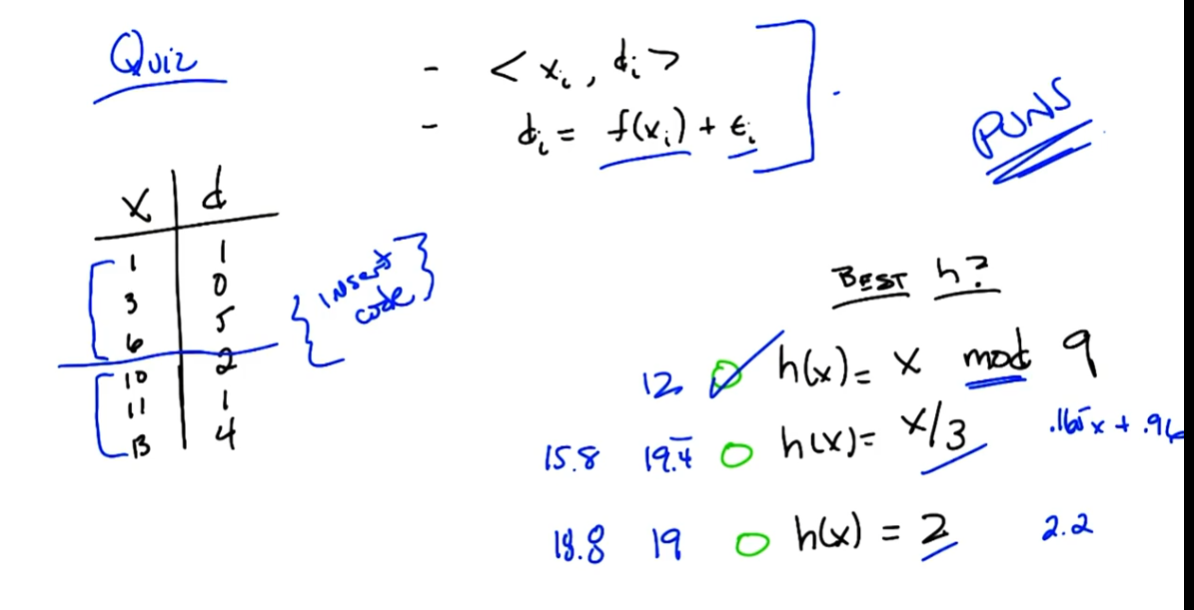 Quiz
- < xᵢ , dᵢ >
- dᵢ = f(xᵢ) + εᵢ
PUNS
x d
1 1
3 0
6 5
10 2
11 1
13 4
{ insert
code }
BEST h?
12 h(x) = x mod 9
15.8 19.4̄ h(x) = x/3 .165x + .96
18.8 19 h(x) = 2 2.2